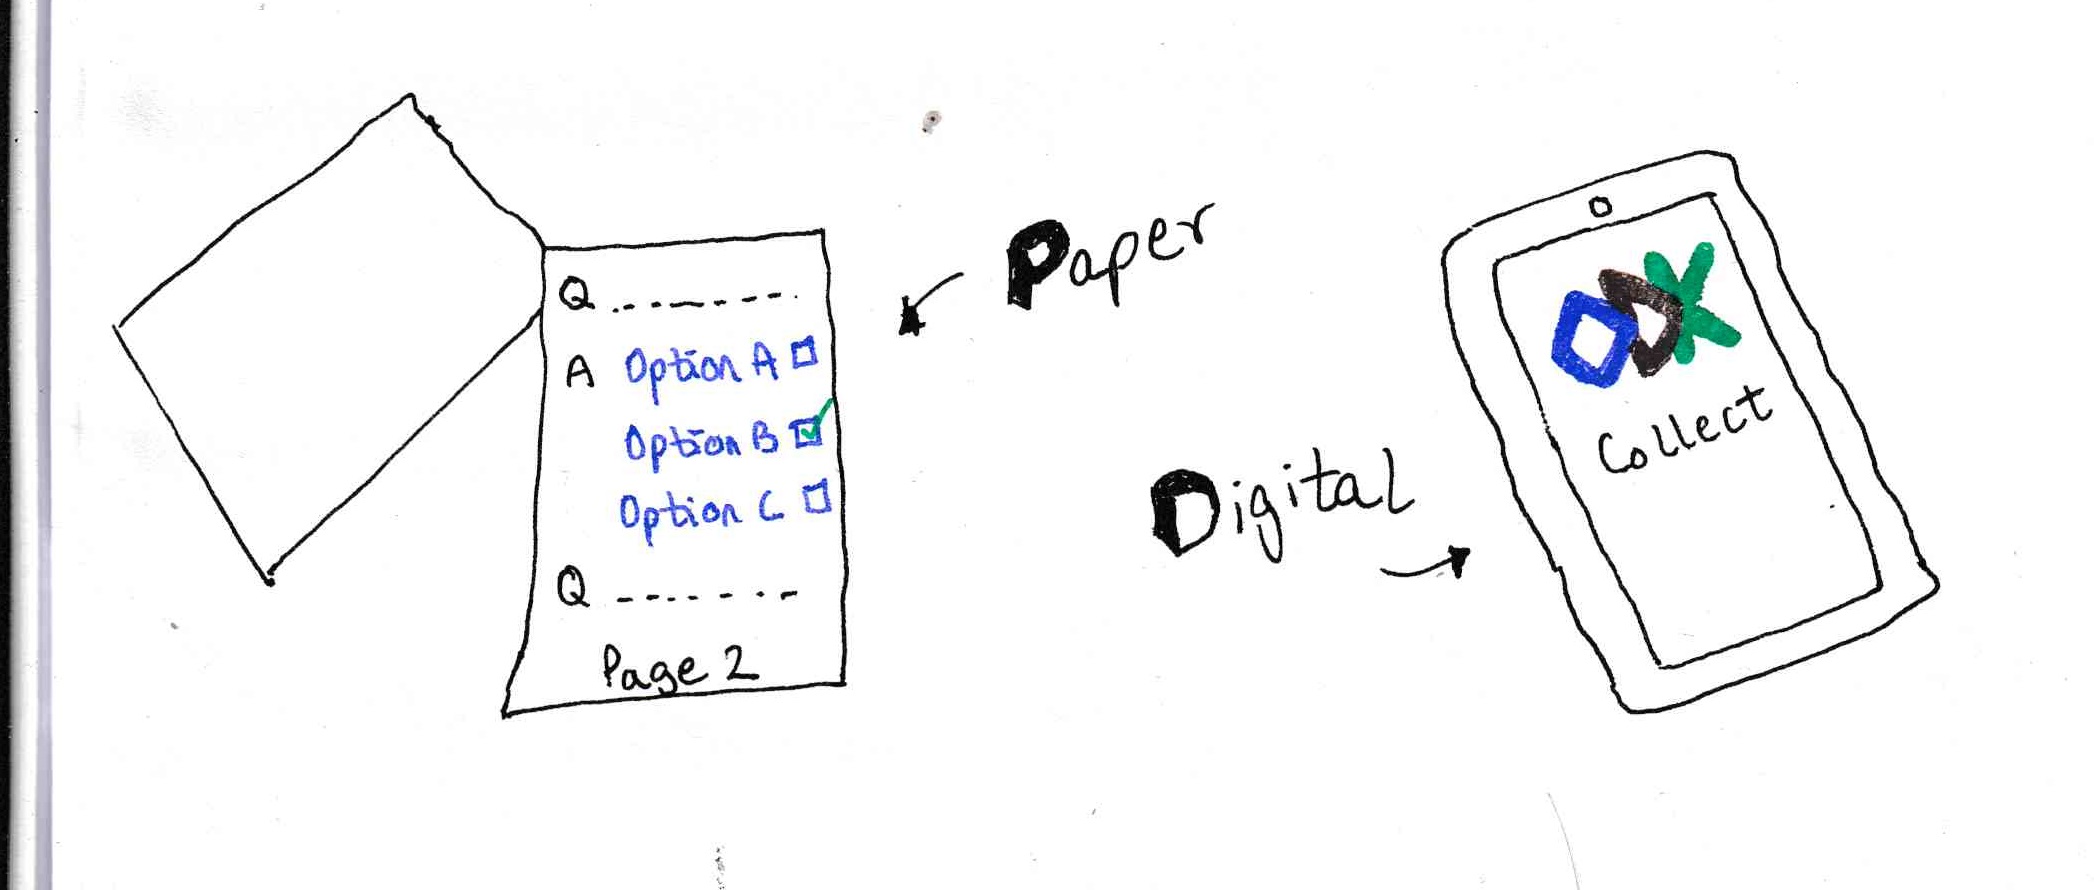 Q
A Option A
Option B
Option C
Q
Page 2
Paper
Digital
ODK
Collect